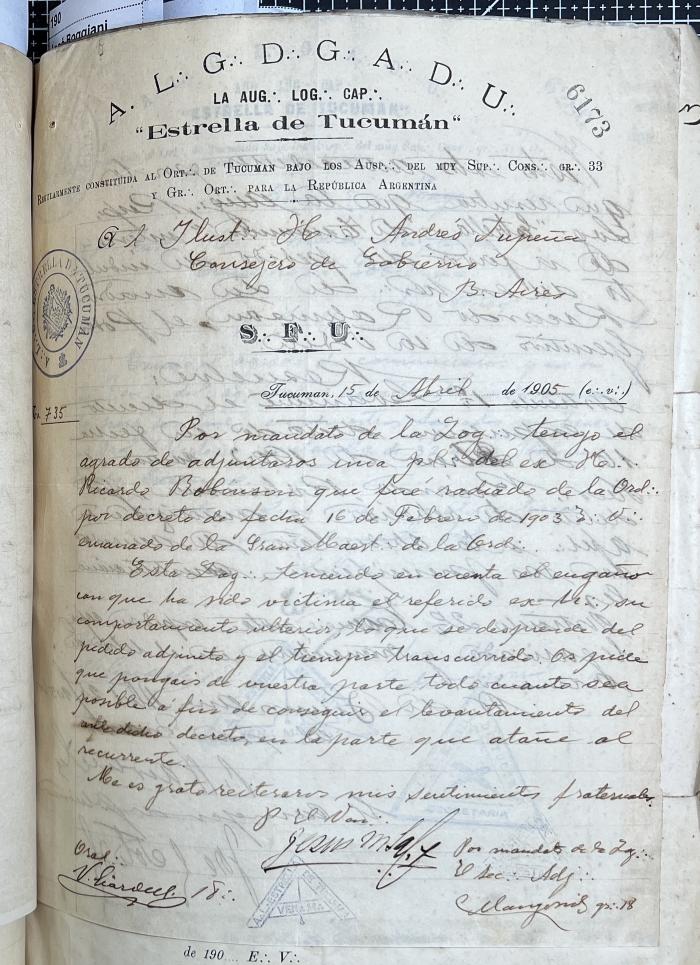 190
A.·. L.·. G.·. D.·. G.·. A.·. D.·. U.·.
6173
LA AUG.·. LOG.·. CAP.·.
"Estrella de Tucumán"
REGULARMENTE CONSTITUIDA AL ORT.·. DE TUCUMAN BAJO LOS AUSP.·. DEL MUY SUP.·. CONS.·. GR.·. 33
Y GR.·. ORT.·. PARA LA REPÚBLICA ARGENTINA
A l Ilust. H. Andrés
Consejero de Gobierno
B. Aires
S.·. F.·. U.·.
Tucuman, 15 de Abril de 1905 (e.·. v.·.)
735
Por mandato de la Log.·. tengo el
agrado de adjuntaros una pl.·. del ex H.·.
Ricardo Robinson que fué radiado de la Ord.·.
por decreto de fecha 16 de Febrero de 1903 v.·.
emanado de la Gran Maest. de la Ord.·.
Esta Log.·., teniendo en cuenta el engaño
con que ha sido victima el referido ex H.·., su
comportamiento ulterior, lo que se desprende del
pedido adjunto y el tiempo transcurrido. Os pide
que pongais de vuestra parte todo cuanto sea
posible a fin de conseguir el levantamiento del
decreto, en la parte que atañe al
recurrente.
Me es grato reiteraros mis sentimientos fraternales.
p. El Ven.·.
Jesus M.
Por mandato de la Log.·.
El Sec.·. Adj.·.
Orad.·.
18.·.
gr.·. 18
de 190.... E.·. V.·.